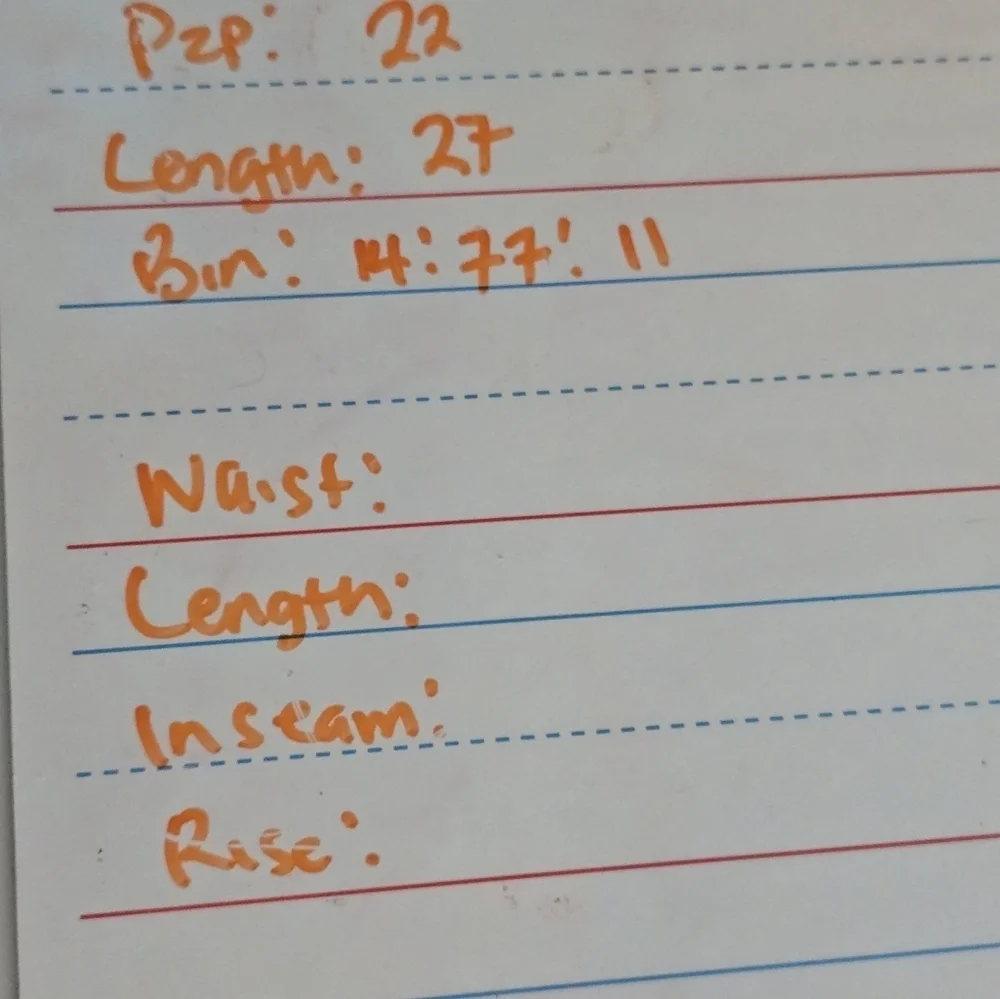 P2P: 22
Length: 27
Bin: 14: 77: 11
Waist:
Length:
Inseam:
Rise: